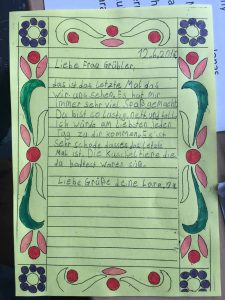 12.6.2016
Liebe Frau Grübler.
das ist das letzte Mal das
wir uns sehen. Es hat mir
immer sehr viel Spaß gemacht.
Du bist so lustig, nett und toll.
Ich würde am Liebsten jeden
Tag zu dir kommen. Es ist
sehr schade dass es das letzte
Mal ist. Die Kuscheltiere die
du hattest waren süß.
Liebe Grüße deine Lara,